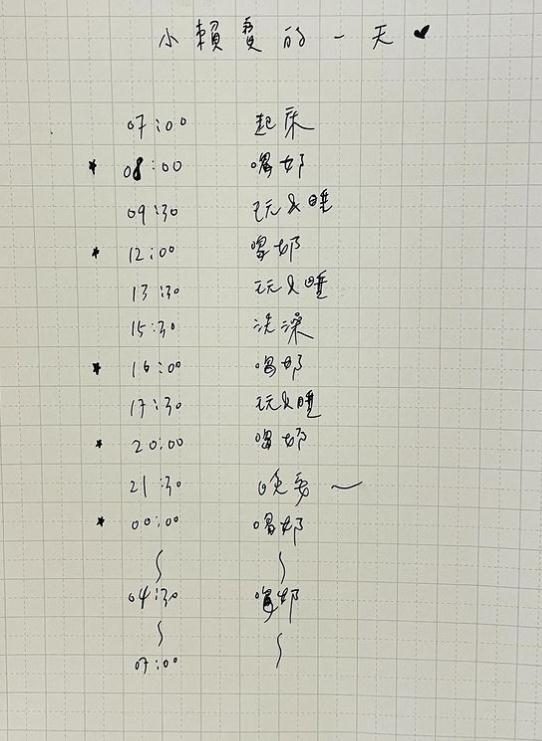 小賴寶的一天♥
07:00 起床
★ 08:00 喝奶
09:30 玩&睡
★ 12:00 喝奶
13:30 玩&睡
15:30 洗澡
★ 16:00 喝奶
17:30 玩&睡
★ 20:00 喝奶
21:30 晚安~
★ 00:00 喝奶
~ ~
04:30 喝奶
~ ~
07:00